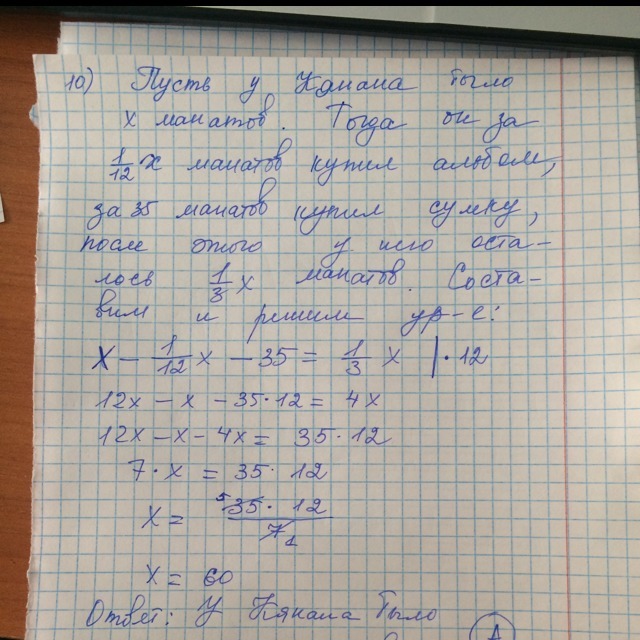 10) Пусть у Кянана было
x манатов. Тогда он за
1/12 x манатов купил альбом,
за 35 манатов купил сумку,
после этого у него оста-
лось 1/3 x манатов. Соста-
вим и решим ур-е:
x - 1/12 x - 35 = 1/3 x |· 12
12x - x - 35·12 = 4x
12x - x - 4x = 35·12
7·x = 35·12
x = 5 35·12 / 7 1
x = 60
Ответ: У Кянана было
A